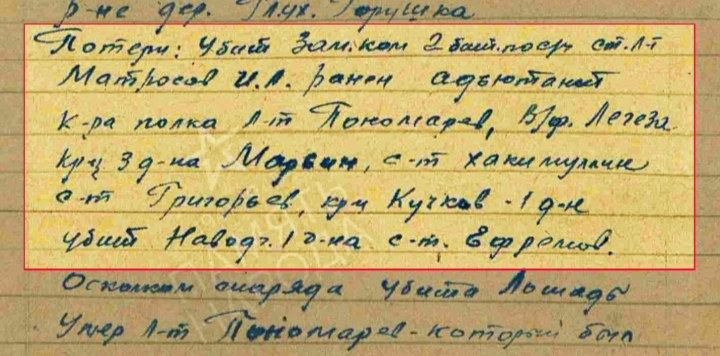 р-не дер. Глух. Горушка
Потери: убит Зам. ком 2 бат. по стр ст. л-т
Матросов И.Л. ранен адъютант
к-ра полка л-т Пономарев, В/ф. Легеза
кр-ц 3 д-на Марвин, с-т Хакимуллин
с-т Григорьев, кр-ц Кучков - 1 д-н
убит Наводч. 1 д-на с-т. Ефремов.
Осколком снаряда убита Лошадь
Умер л-т Пономарев - который был
ПАМЯТЬ
НАРОДА